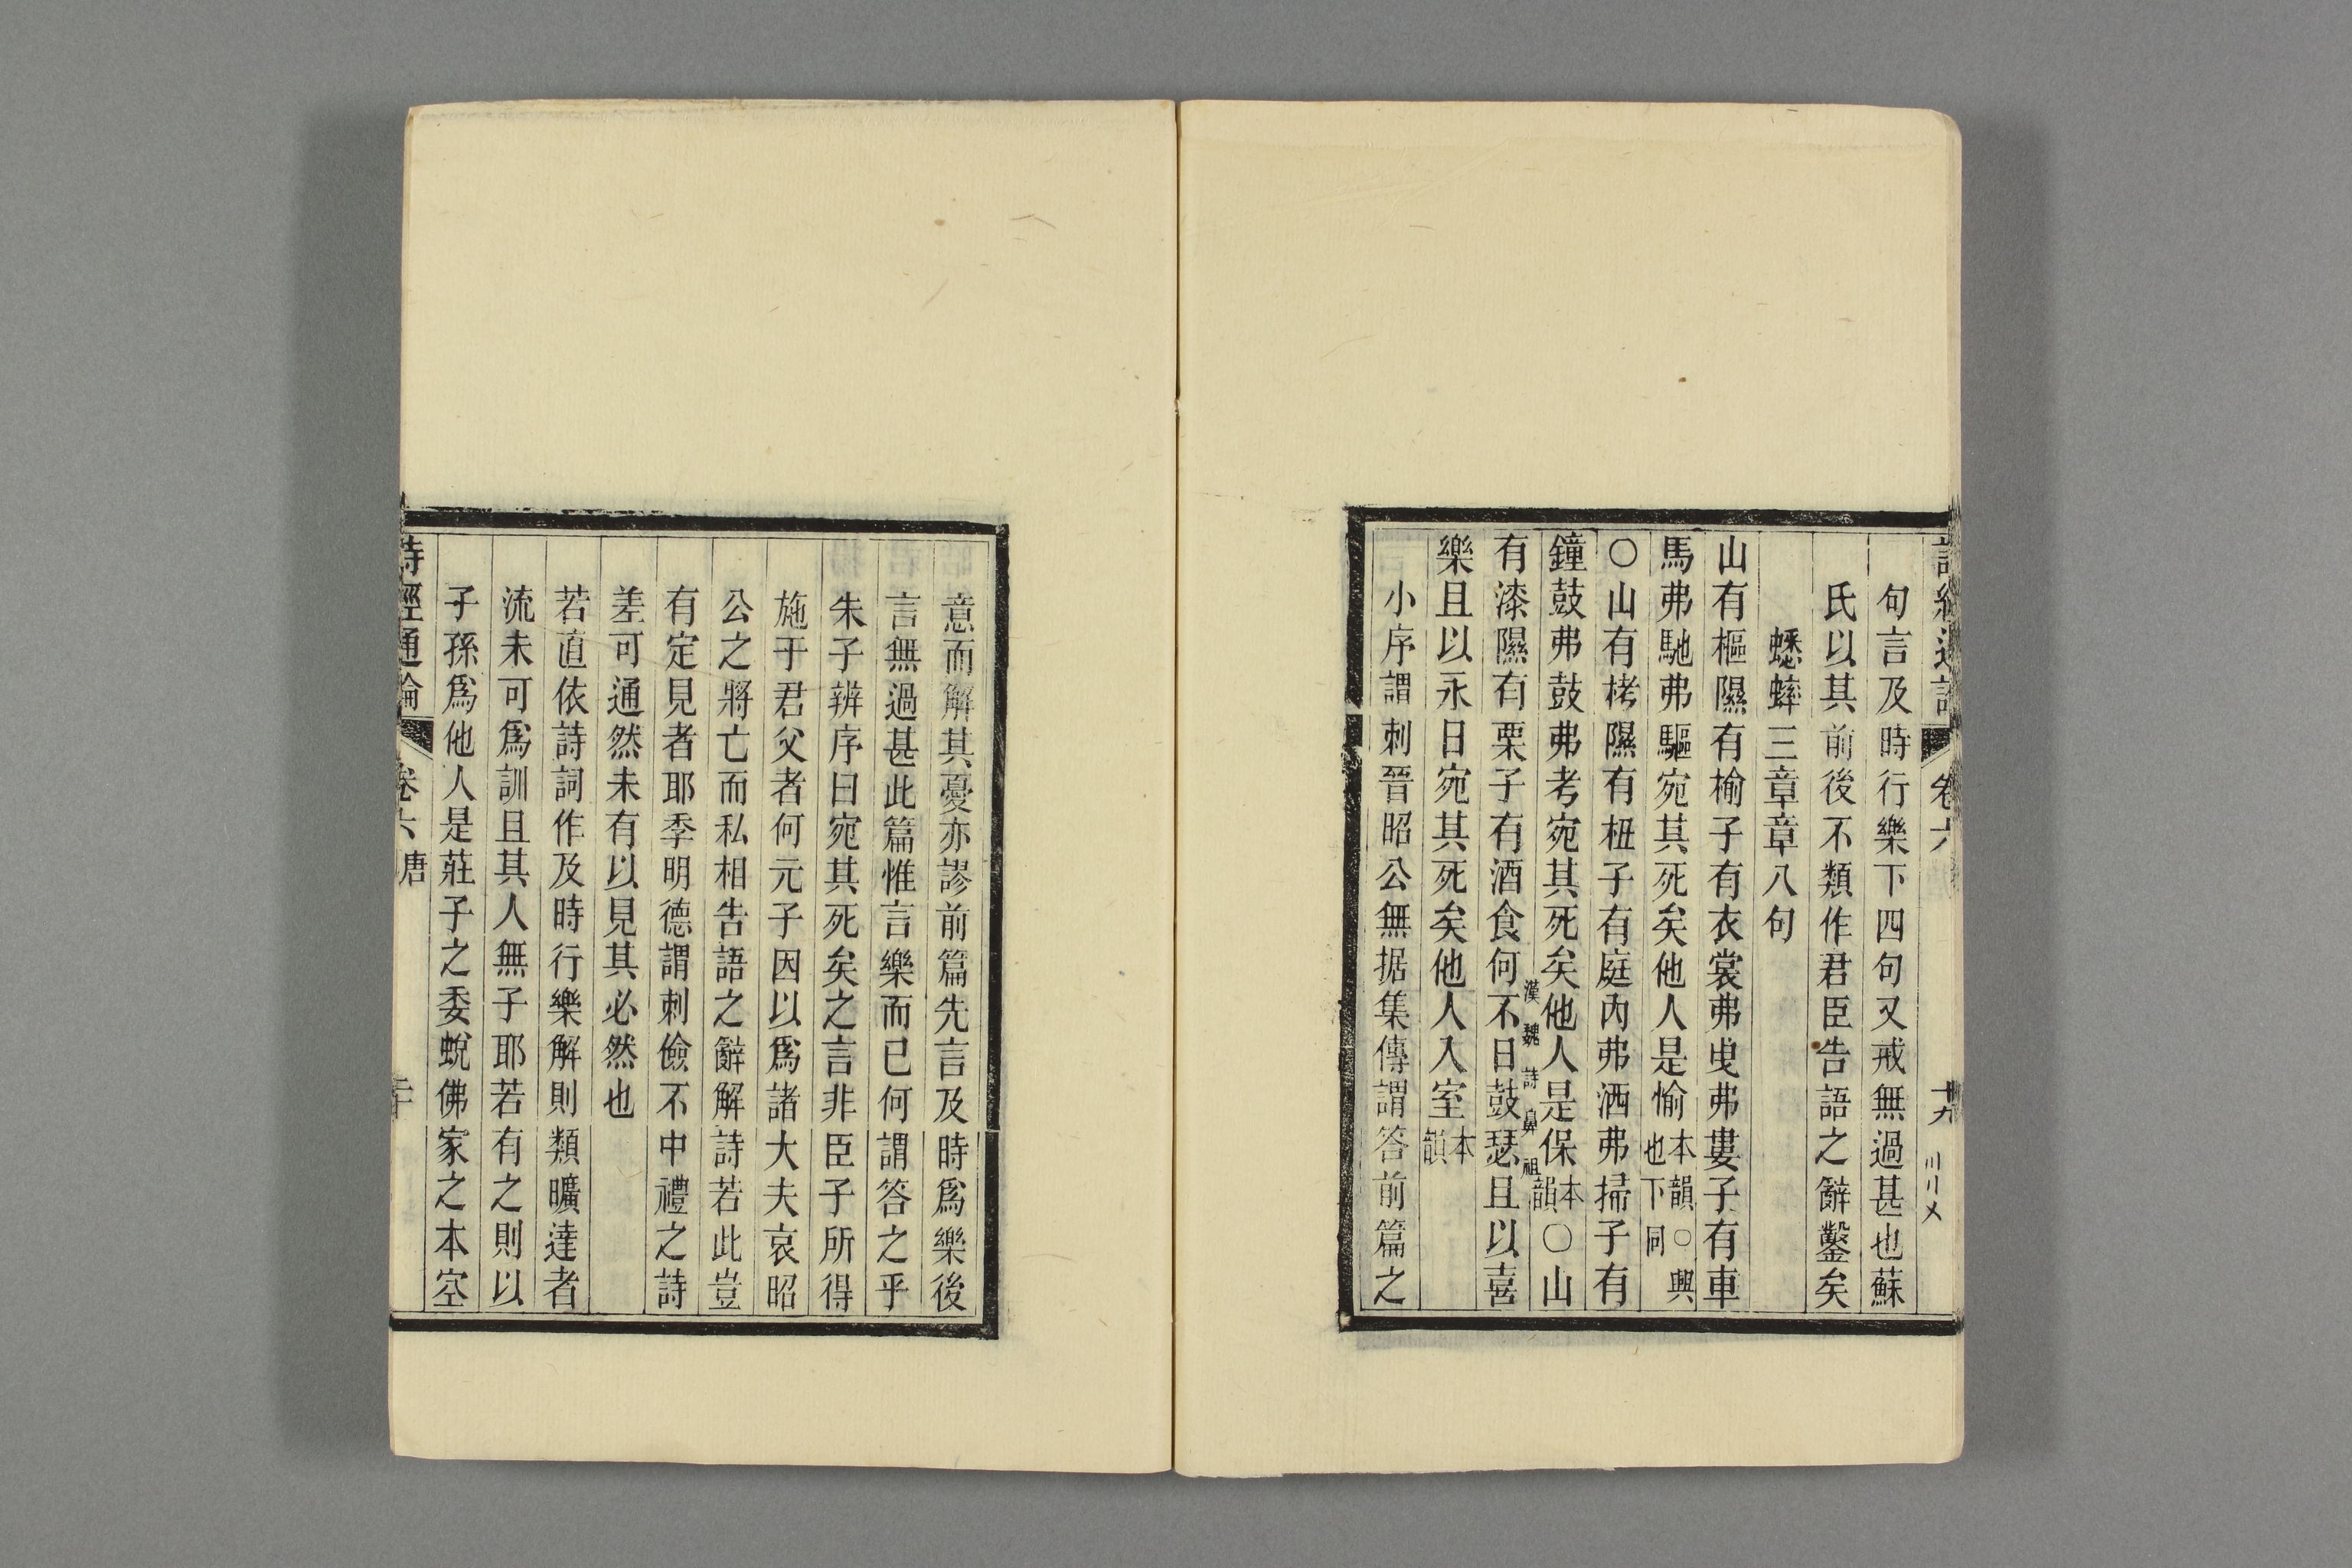 句言及時行樂下四句又戒無過甚也蘇
氏以其前後不類作君臣告語之辭鑿矣
蟋蟀三章章八句
山有樞隰有榆子有衣裳弗曳弗婁子有車
馬弗馳弗驅宛其死矣他人是愉本韻○興也下同
○山有栲隰有杻子有庭內弗洒弗掃子有
鐘鼓弗鼓弗考宛其死矣他人是保本韻○山
漢魏詩鼻祖
有漆隰有栗子有酒食何不日鼓瑟且以喜
樂且以永日宛其死矣他人入室本韻
小序謂刺晉昭公無据集傳謂答前篇之
意而解其憂亦謬前篇先言及時爲樂後
言無過甚此篇惟言樂而已何謂答之乎
朱子辨序曰宛其死矣之言非臣子所得
施于君父者何元子因以爲諸大夫哀昭
公之將亡而私相告語之辭解詩若此豈
有定見者耶季明德謂刺儉不中禮之詩
差可通然未有以見其必然也
若直依詩詞作及時行樂解則類曠達者
流未可爲訓且其人無子耶若有之則以
子孫爲他人是莊子之委蛻佛家之本空
詩經通論 卷六 唐